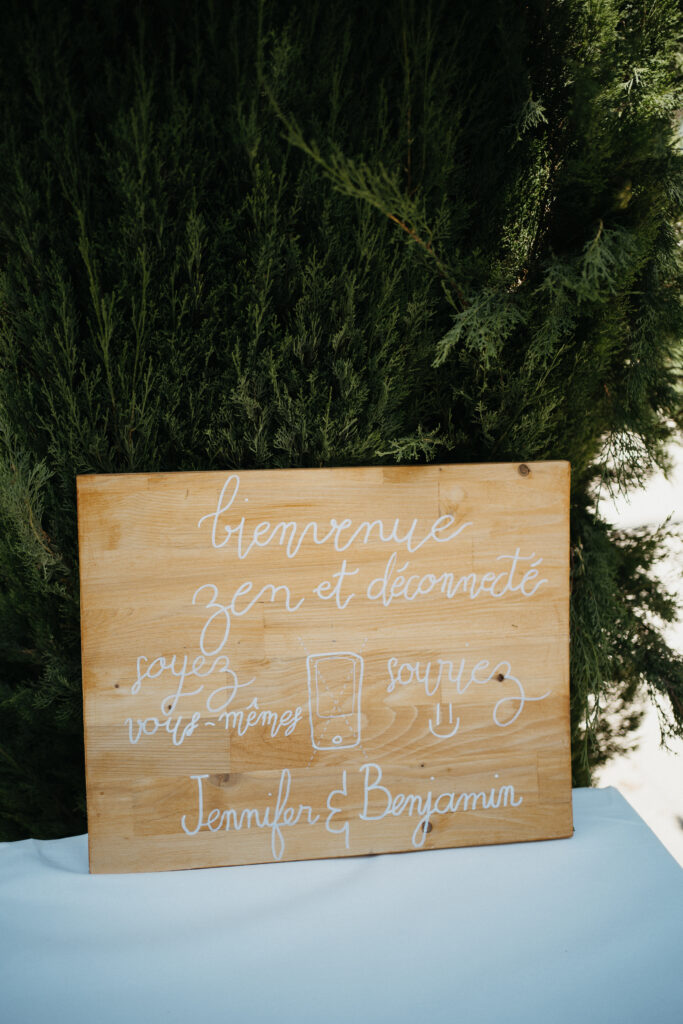 bienvenue
zen et déconnecté
soyez
vous-mêmes
souriez
Jennifer & Benjamin